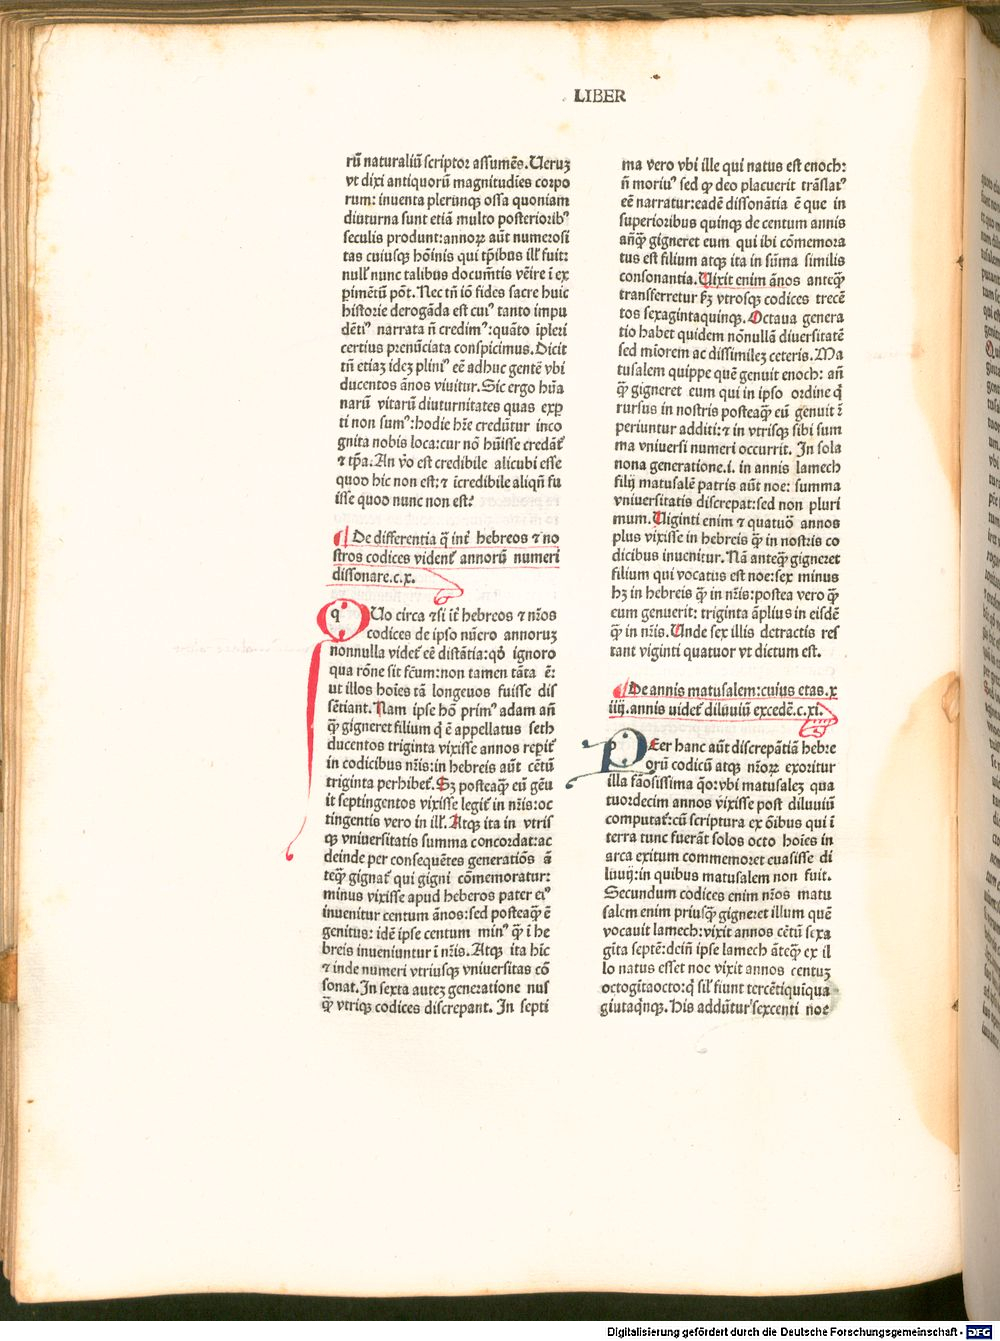 LIBER
rū naturaliū scriptor assumēs. Ueruʒ
vt dixi antiquorū magnitudies corpo
rum: inuenta plerūqꝫ ossa quoniam
diuturna sunt etiā multo posteriorib⁹
seculis produnt: annoꝝ aūt numerosi
tas cuiusqꝫ hōinis qui tp̄ibus ill̕ fuit:
null̕ nunc talibus docum̄tis vēire ī ex
ꝑimētū pōt. Nec tn̄ iō fides sacre huic
historie derogāda est cui⁹ tanto impu
dēti⁹ narrata n̄ credim⁹: quāto īpleri
certius prenūciata conspicimus. Dicit
tn̄ etiaʒ ideʒ plini⁹ eē adhuc gentē vbi
ducentos ānos viuitur. Sic ergo hūa
narū vitarū diuturnitates quas exꝑ
ti non sum⁹: hodie hr̄e credūtur inco
gnita nobis loca: cur nō hūisse credāt̕
⁊ tp̄a. An v̄o est credibile alicubi esse
quod hic non est: ⁊ īcredibile aliqn̄ fu
isse quod nunc non est?
De differentia q̄ int̕ hebreos ⁊ no
stros codices vident̕ annorū numeri
dissonare. c. x.
q Uo circa ⁊si it̕ hebreos ⁊ nr̄os
codices de ipso nūero annoruʒ
nonnulla videt̕ eē distātia: qđ ignoro
qua rōne sit fc̄um: non tamen tāta ē:
ut illos hoīes tā longeuos fuisse dis
sētiant. Nam ipse hō prim⁹ adam añ
qꝫ gigneret filium q̄ ē appellatus seth
ducentos triginta vixisse annos reꝑit̕
in codicibus nr̄is: in hebreis aūt cētū
triginta perhibet̕. Sʒ posteaqꝫ eū gēu
it septingentos vixisse legit̕ in nr̄is: oc
tingentis vero in ill̕. Atqꝫ ita in vtris
qꝫ vniuersitatis summa concordat: ac
deinde per consequētes generatiōs ā
teqꝫ gignat̕ qui gigni cōmemoratur:
minus vixisse apud heberos pater ei⁹
inuenitur centum ānos: sed posteaqꝫ ē
genitus: idē ipse centum min⁹ qꝫ ī he
breis inueniuntur ī nr̄is. Atqꝫ ita hīc
⁊ inde numeri vtriusqꝫ vniuersitas cō
sonat. In sexta auteʒ generatione nus
qꝫ vtriqꝫ codices discrepant. In septi
ma vero vbi ille qui natus est enoch:
n̄ moriu⁹ sed qꝫ deo placuerit trāslat⁹
eē narratur: eadē dissonātia ē que in
superioribus quinqꝫ de centum annis
añqꝫ gigneret eum qui ibi cōmemora
tus est filium atqꝫ ita in sūma similis
consonantia. Uixit enim ānos anteqꝫ
transferretur ẜʒ vtrosqꝫ codices trecē
tos sexagintaquinqꝫ. Octaua genera
tio habet quidem nōnullā diuersitatē
sed mīorem ac dissimileʒ ceteris. Ma
tusalem quippe quē genuit enoch: añ
qꝫ gigneret eum qui in ipso ordine q̄
rursus in nostris posteaqꝫ eū genuit ī
periuntur additi: ⁊ in vtrisqꝫ sibi sum
ma vniuersi numeri occurrit. In sola
nona generatione. i. in annis lamech
filij matusalē patris aūt noe: summa
vniuersitatis discrepat: sed non pluri
mum. Uiginti enim ⁊ quatuō annos
plus vixisse in hebreis qꝫ in nostris co
dicibus inuenitur. Nā anteqꝫ gigneret
filium qui vocatus est noe: sex minus
hʒ in hebreis qꝫ in nr̄is: postea vero qꝫ
eum genuerit: triginta āplius in eisdē
qꝫ in nr̄is. Unde sex illis detractis res
tant viginti quatuor vt dictum est.
De annis matusalem: cuius etas. x
iiij. annis uidet̕ diluuiū excedē. c. xi.
p Eer hanc aūt discrepātiā hebre
orū codicū atqꝫ nr̄oꝝ exoritur
illa fāosissima q̄o: vbi matusaleʒ qua
tuordecim annos vixisse post diluuiū
computat̕: cū scriptura ex ōibus qui ī
terra tunc fuerāt solos octo hoīes in
arca exitum commemoret euasisse di
luuij: in quibus matusalem non fuit.
Secundum codices enim nr̄os matu
salem enim priusqꝫ gigneret illum quē
vocauit lamech: vixit annos cētū sexa
gīta septē: dcīn̄ ipse lamech āteqꝫ ex il
lo natus esset noe vixit annos centuʒ
octogītaocto: q̄ sil̕ fiunt tercētiquīqua
gīutaq̄nqꝫ. His addūtur sexcenti noe
Digitalisierung gefördert durch die Deutsche Forschungsgemeinschaft - DFG